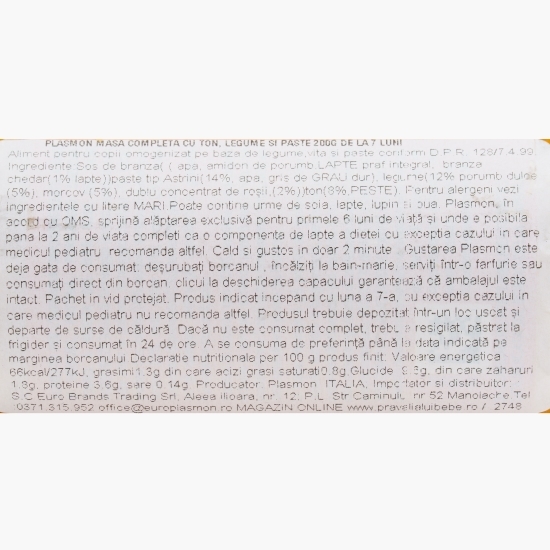 PLASMON MASA COMPLETA CU TON, LEGUME SI PASTE 200G DE LA 7 LUNI
Aliment pentru copii omogenizat pe baza de legume,vita si paste conform D.P.R. 128/7.4.99.
Ingrediente:Sos de branza( ( apa, amidori de porumb,LAPTE praf integral, branza
chedar(1% lapte))paste tip Astrini(14%, apa, gris de GRAU dur), legume(12% porumb dulce
(5%), morcov (5%), dublu concentrat de roşii,(2%))ton(8%,PESTE). Pentru alergeni vezi
ingredientele cu litere MARI.Poate contine urme de soia, lapte, lupin si oua. Plasmon, în
acord cu OMS, sprijină alăptarea exclusivă pentru primele 6 luni de viaţă şi unde e posibila
pana la 2 ani de viata completi ca o componenta de lapte a dietei cu exceptia cazului in care
medicul pediatru recomanda altfel. Cald si gustos in doar 2 minute Gustarea Plasmon este
deja gata de consumat: deşurubaţi borcanul , încălziţi la bain-marie, serviţi într-o farfurie sau
consumaţi direct din borcan, clicul la deschiderea capacului garantează că ambalajul este
intact. Pachet in vid protejat. Produs indicat incepand cu luna a 7-a, cu exceptia cazului in
care medicul pediatru nu recomanda altfel. Produsul trebuie depozitat într-un loc uscat şi
departe de surse de căldură. Dacă nu este consumat complet, trebuie resigilat, păstrat la
frigider şi consumat în 24 de ore. A se consuma de preferinţă până la data indicată pe
marginea borcanului.Declaratie nutritionala per 100 g produs finit: Valoare energetica
66kcal/277kJ, grasimi1.3g din care acizi grasi saturati0.8g.Glucide g, din care zaharuri
1.3g, proteine 3.6g, sare 0.14g. Producator: Plasmon ITALIA, Importator si distribuitor:
S.C Euro Brands Trading Srl, Aleea ilioara, nr. 12, P.L. Str Caminului, nr 52 Manolache.Tel
0371.315.952 office@europlasmon.ro MAGAZIN ONLINE www.pravalialuibebe.ro / 2748